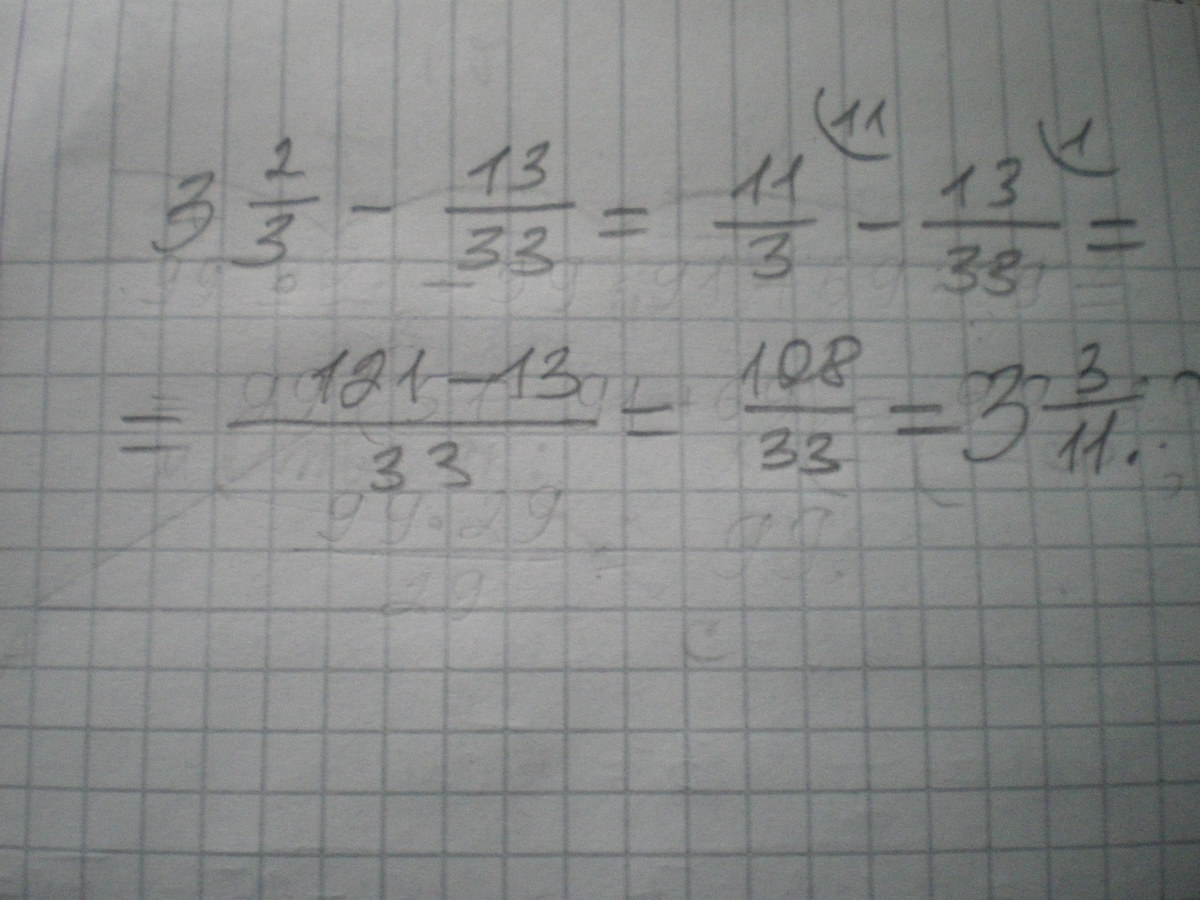 3 2/3 - 13/33 = 11/3 (11 - 13/33 (1 =
= 121-13/33 = 108/33 = 3 3/11.